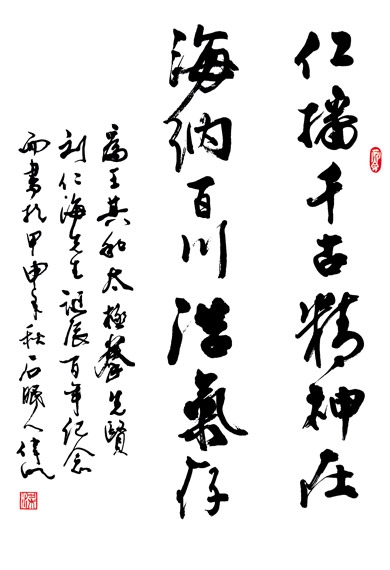 仁播千古精神在
海纳百川浩氣存
为王其和太极拳先贤
刘仁海先生诞辰百年纪念
而書於甲申年秋石眠人